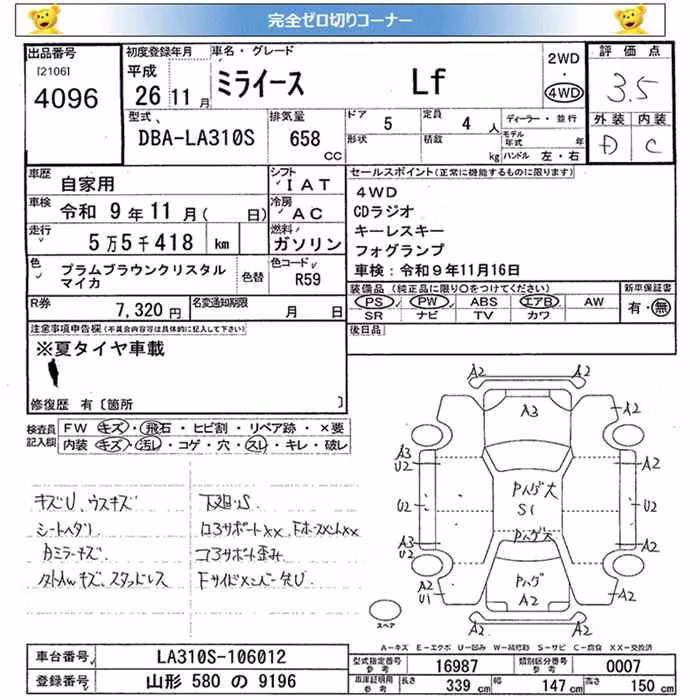 完全ゼロ切りコーナー
出品番号
[2106]
4096
初度登録年月
平成
26 11月
車名・グレード
ミライース Lf
2WD
・
4WD
評価点
3.5
外装 内装
D C
型式
DBA-LA310S
排気量
658
cc
ドア 5
形状
定員 4 人
積載 kg
ディーラー・並行
モデル年式 年
ハンドル 左・右
車歴
自家用
シフト
IAT
車検
令和 9年11月( 日)
冷房
AC
走行
5万5千418 km
燃料
ガソリン
色
プラムブラウンクリスタル
マイカ
色替
色コード
R59
R券
7,320円
名変通知期限
月 日
セールスポイント(正常に機能するものに限ります)
4WD
CDラジオ
キーレスキー
フォグランプ
車検:令和9年11月16日
装備品(純正品に限り○をつけてください)
PS PW ABS エアB AW
SR ナビ TV カワ
新車保証書
有・無
後日品
注意事項申告欄(不具合内容等は具体的に記入して下さい)
※夏タイヤ車載
修復歴 有〔箇所 〕
検査員記入欄
FW キズ・飛石・ヒビ割・リペア跡・×要
内装 キズ・汚れ・コゲ・穴・スレ・キレ・破レ
キズU、ウスキズ
シートヘタリ
カミラーキズ
下廻りS
コアサポート歪み
A2 A2
A3
A2
A3
U2
A2
Pハゲ大
S1
U2
U2
Pハゲ大
A3
U2
A2
A2
U1
Pハゲ
A2
A2
A2 A2
スペア
A-キズ E-エクボ U-凹み W-補修跡 S-サビ C-腐食 XX-交換済
車台番号
LA310S-106012
登録番号
山形 580 の 9196
型式指定番号
参考
16987
類別区分番号
参考
0007
車庫証明用
参考
長さ 339 cm
幅 147 cm
高さ 150 cm